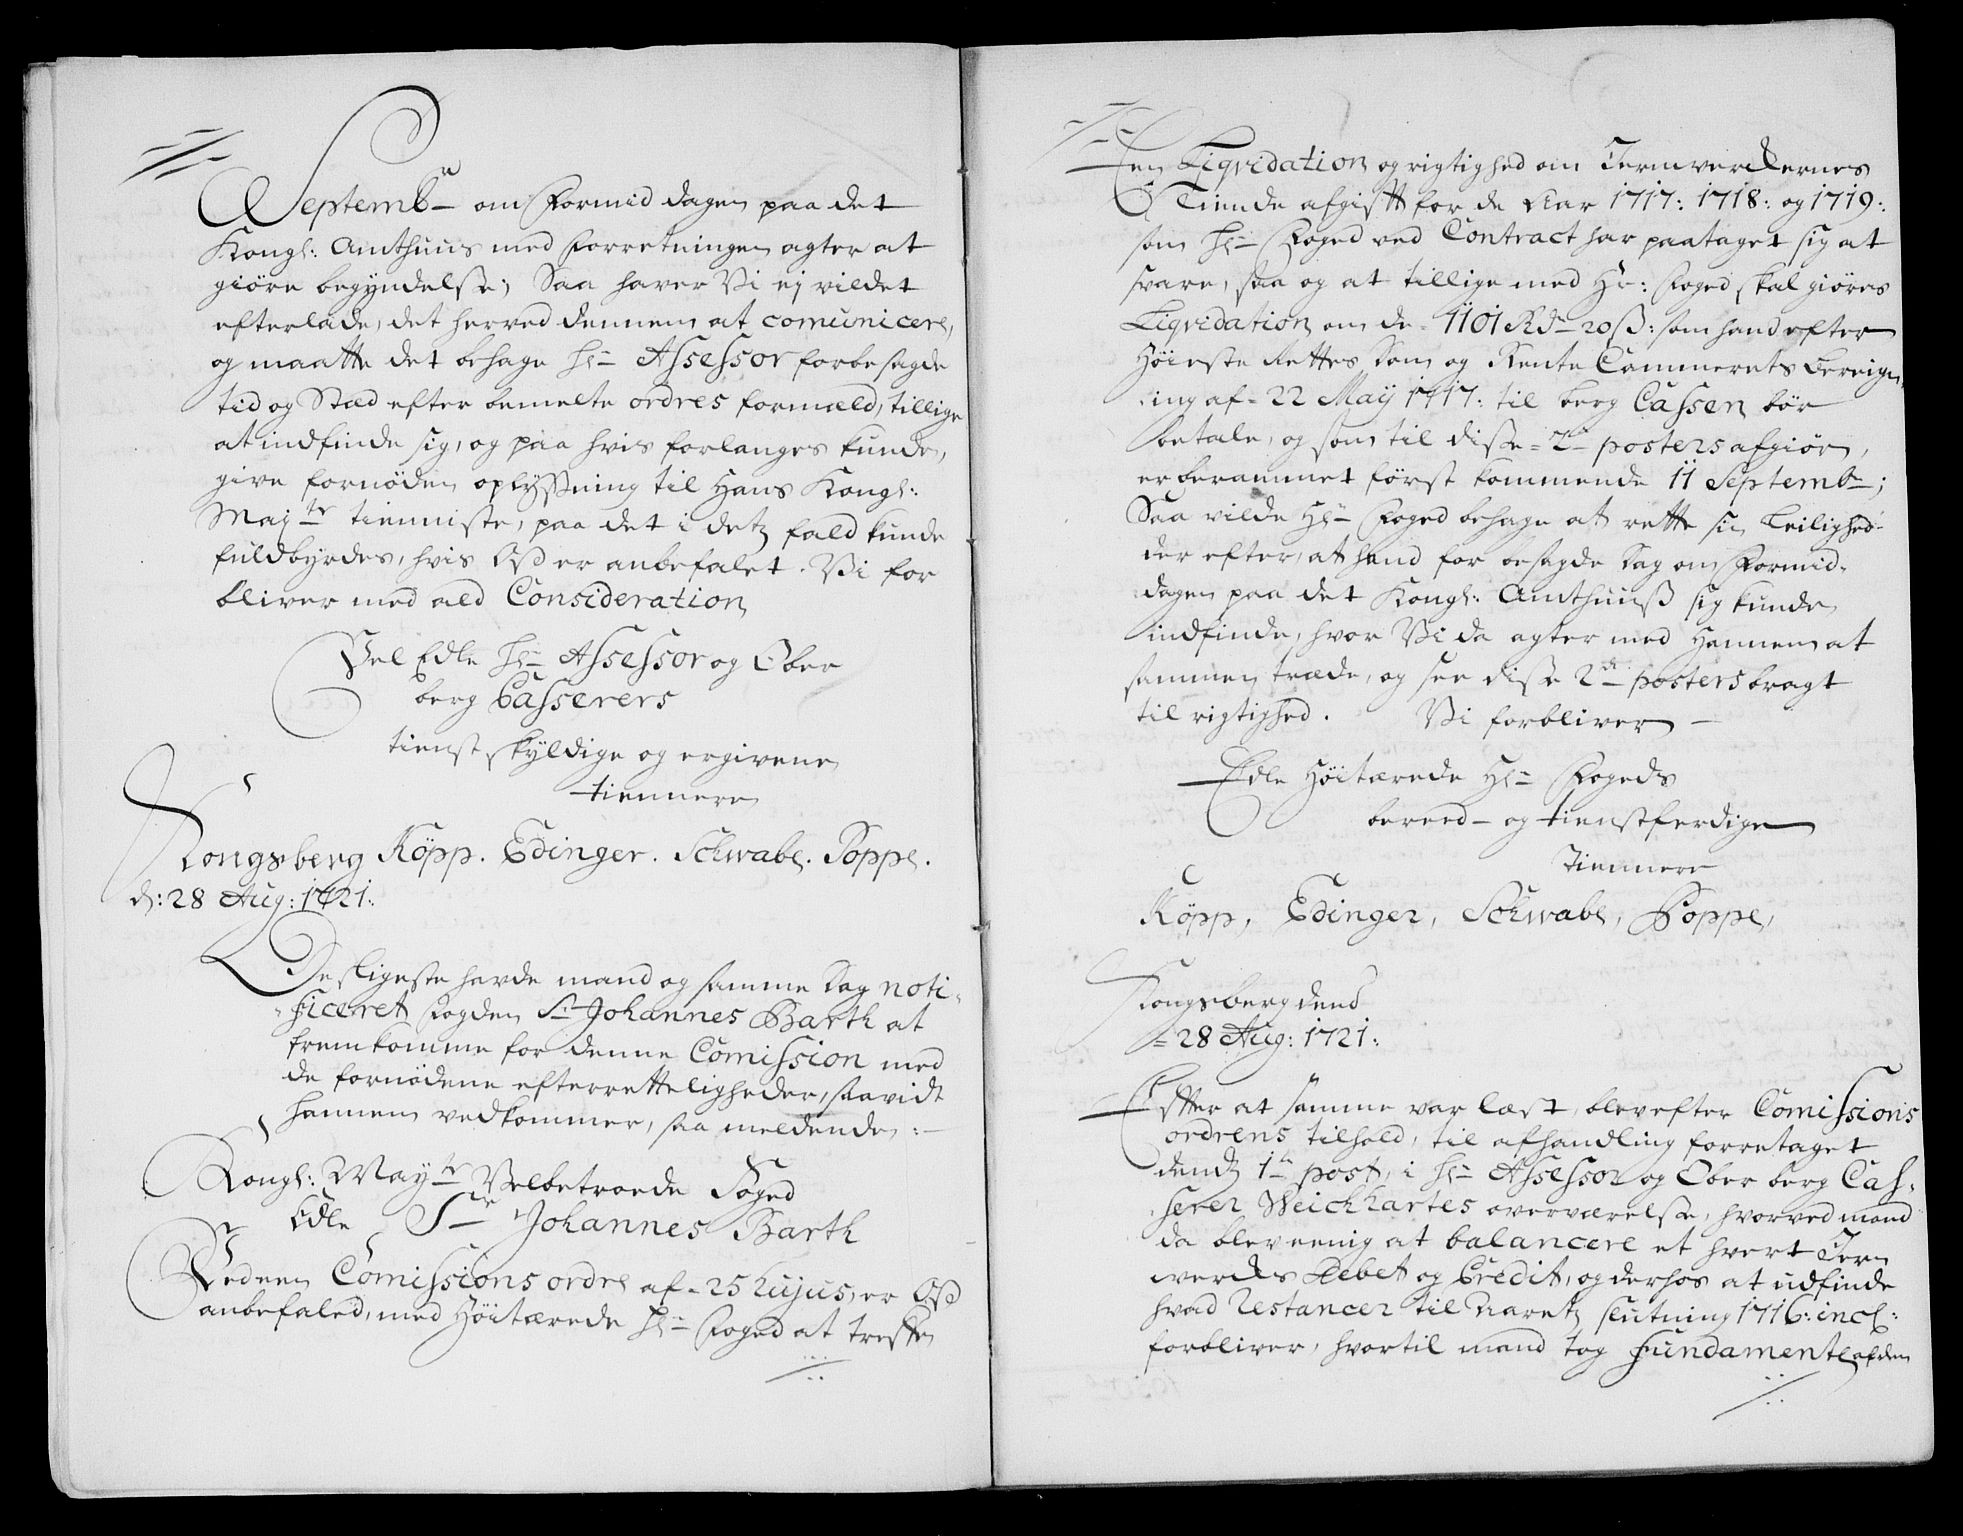 Septembr om Formiddagen paa det
Kongl: Amthuus med Forretningen agter at
giøre begyndelse; Saa haver Vi ej vildet
efterlade, det herved dennem at comunicere,
og maatte det behage Hr Assessor forbesagde
tid og Stæd efter bemelte ordres formæld, tillige
at indfinde sig, og paa hvis forlanges kunde,
give fornøden oplyssning til Hans Kongl:
Maytr tienniste, paa det i detz fald kunde
fuldbyrdes, hvis Oss er anbefalet. Vi for
bliver med ald Consideration
Vel Edle Hr Assessor og Ober
berg Casserers
tienstskyldige og ergivene
tiennere
Kongsberg Köpp. Edinger. Schwabe. Poppe.
d: 28 Aug: 1721.
Desligeste hafde mand og samme dag noti-
ficeret Fogden Sr Johannes Barth at
fremkomme for denne Comission med
de fornødene efterretteligheder, saavidt
hannem vedkommer, saa meldende:
Kongl: Maytr Velbetroede Foged
Edle Sr Johannes Barth
Ved een Comissions ordre af 25 hujus, er Oss
anbefaled, med Høitærede Hr Foged at treffe
Een Liqvidation og rigtighed om Jernverckernes
Tiende afgifft for de Aar 1717: 1718: og 1719:
som Hr Foged ved Contract har paataget sig at
svare, saa og at tillige med Hr: Foged skal giøres
Liqvidation om de 1101 Rdr 20 ß: som hand efter
Høieste Rettes dom og Rente Cammerets
ing af 22 May 1717: til berg Cassen bør
betale, og som til disse 2de posters afgiør,
er berammet først kommende 11 Septembr;
Saa vilde Hr Foged behage at rette sin Leilighed
der efter, at hand for besagde dag om Formid-
dagen paa det Kongl: Amthuuss sig kunde
indfinde, hvor Vi da agter med Hannem at
sammentræde, og see disse 2de posters bragt
til rigtighed. Vi forbliver
Edle Høitærede Hr Fogeds
bereed- og tienstferdige
Tiennere
Köpp, Edinger, Schwabe, Poppe,
Kongsberg dend
28 Aug: 1721:
Effter at samme var læst, blev efter Comissions
ordrens tilhold, til afhandling foretaget
dend 1te post, i Hr Assessor og Ober berg Cas-
serer Weichhartes overværelse, hvorved mand
da blev eenig at balancere et hvert Jern
wercks Debet og Credit, og derhos at udfinde
hvad Restancer til Aaretz slutning 1716: incl:
forbliver, hvortil mand tog Fundamente af den